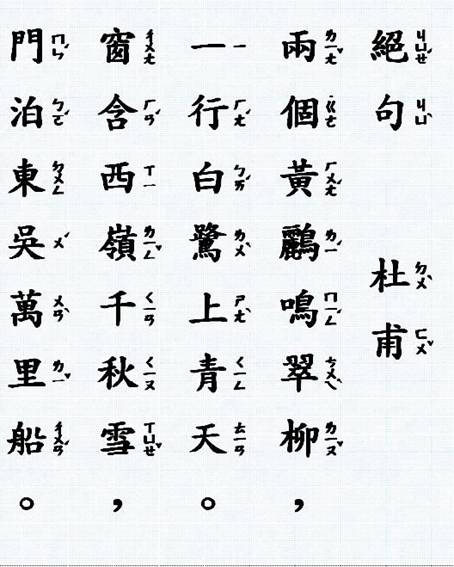 絕句
杜甫
兩個黃鸝鳴翠柳，
一行白鷺上青天。
窗含西嶺千秋雪，
門泊東吳萬里船。